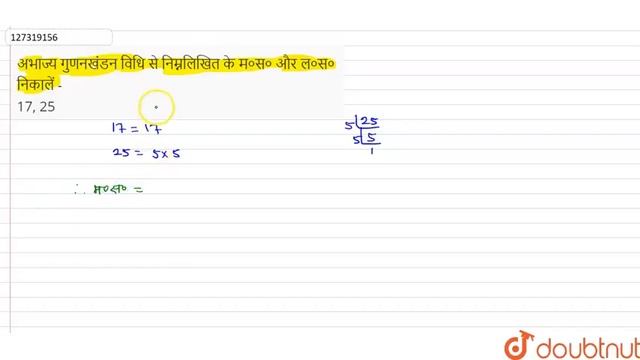 127319156
अभाज्य गुणनखंडन विधि से निम्नलिखित के म०स० और ल०स०
निकालें -
17, 25
17 = 17
25 = 5 x 5
5 25
5 5
1
∴ म०स० =
doubtnut